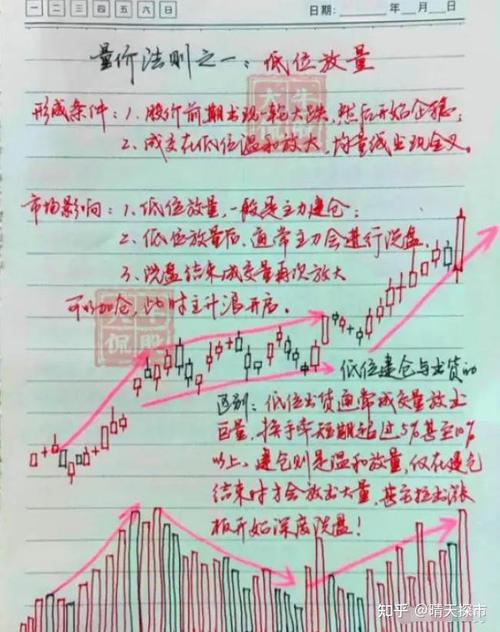 一 二 三 四 五 六 日
日期： 年 月 日
量价法则之一：低位放量
大牛侃股
形成条件：1、股价前期出现一轮大跌，然后开始企稳；
2、成交在低位温和放大，均量线出现金叉。
市场影响：1、低位放量，一般是主力建仓；
2、低位放量后，通常主力会进行洗盘
3、洗盘结束成交量再次放大
可以加仓，此时主升浪开启。
大牛侃股
低位建仓与出货的
区别：低位出货通常成交量放出
巨量，换手率短期超过5%甚至10%
以上。建仓则是温和放量，仅在建仓
结束时才会放出大量，甚至拉出涨
板开始深度洗盘！
知乎 @晴天探市